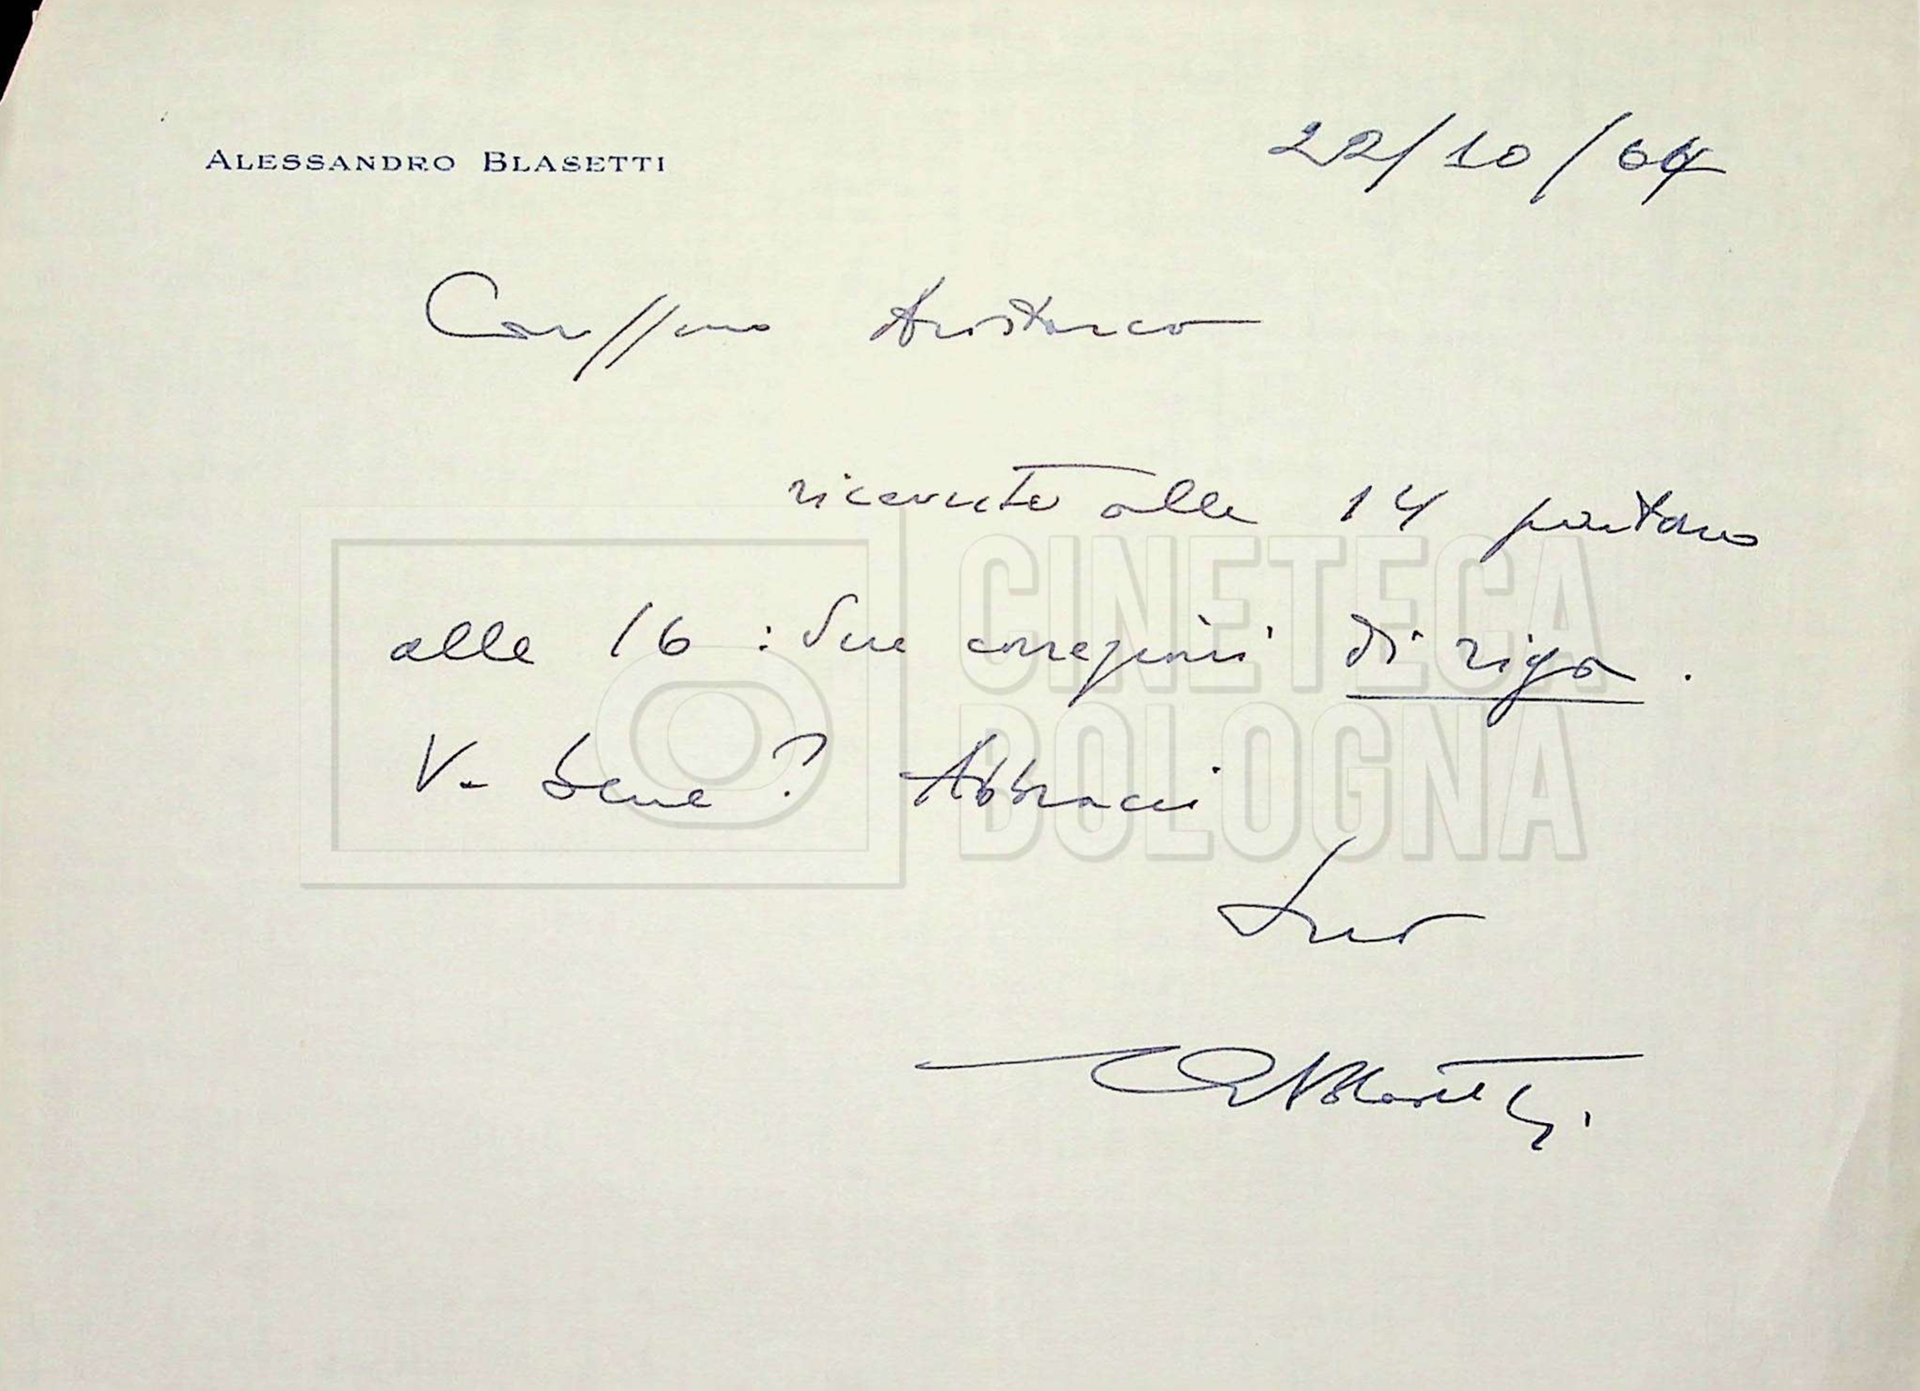 ALESSANDRO BLASETTI
22/10/64
Carissimo Aristarco
ricevute alle 14 portano
alle 16 : due correzioni di riga .
Va bene ? Abbracci
Suo
ABlasetti
CINETECA
BOLOGNA